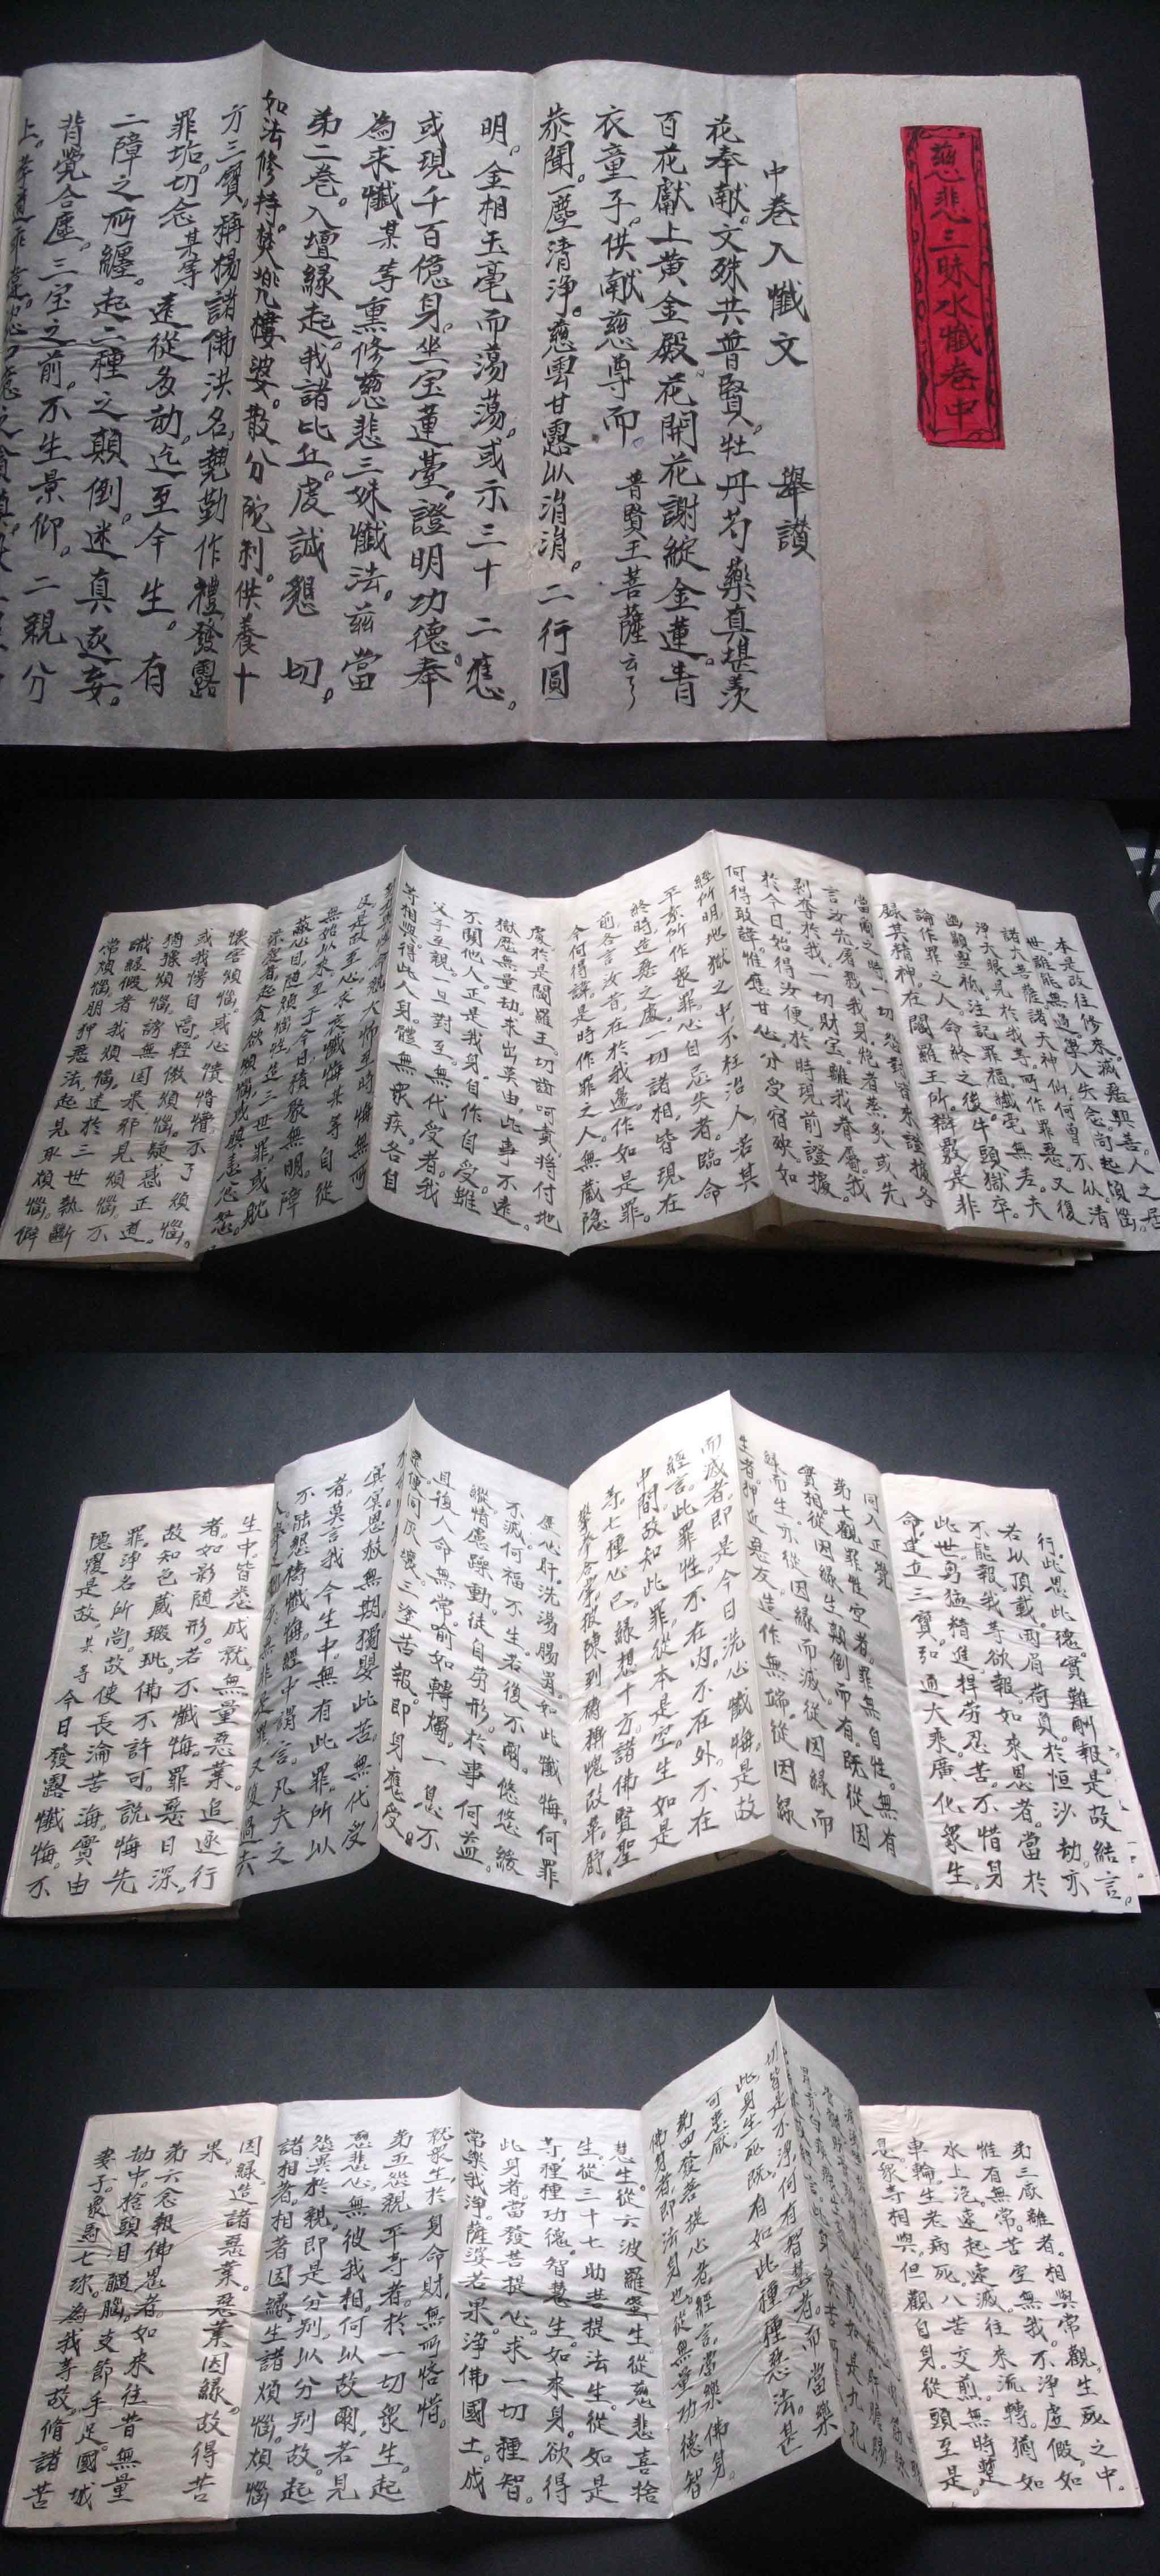 慈悲三昧水懺卷中
中卷入懺文　舉讃
花奉献。文殊共普賢。牡丹芍藥真堪羨
百花獻上黄金殿。花開花謝綻金蓮。青
衣童子。供献慈尊而　普賢王菩薩云了
恭聞。一塵清净。慈雲甘露以涓涓。二行圓
明。金相玉毫而蕩蕩。或示三十二應。
或現千百億身。坐宝蓮薹。證明功德。奉
為求懺某等熏修慈悲三妹懺法。茲當
弟二卷。入壇緣起。我諸比丘。虔誠懇切。
如法修持。焚 樓婆。散分陀利。供養十
方三寶。稱揚諸佛洪名。 勤作禮發露
罪垢。切念某等遠從多劫。迄至今生。有
二障之所纏。起二種之顛倒。迷真逐妄。
背覺合塵。三宝之前。不生景仰。二親分
本是改往修來。滅惡興善。人之居
世。誰能無過。學人失念尚起煩惱。
諸大菩薩諸天神仙。何曾不以清
净天眼見於我等。所作罪惡。又復
幽顯靈祇。注記罪福。纖毫無差。夫
論作罪之人。命終之後。牛頭獄卒。
録其精神。在閻羅王所。辯覈是非
當爾之時。一切怨對皆來證據。各
言汝先屠我我身。炮煮蒸炙。或先
剥奪於我。一切財宝。離我眷屬。我
於今日。始得汝便。於時現前證據。
何得敢諱。惟應甘心。分受宿殃。如
經所明地獄之中。不枉治人。若其
平素所作衆罪。心自忘失者。臨命
終時造惡之處。一切諸相。皆現在
前。各言汝昔。在於我邊。作如是罪。
今何得諱。是時作罪之人。無藏隱
處於是閻羅王。切齒呵責。將付地
獄。歷無量劫。求出莫由。此事不遠。
不關他人。正是我身。自作自受。雖
父子至親。一旦對至。無代受者。我
等相與。得此人身。體無衆疾。各自
無始以來。至于今日。積聚無明。障
蔽心目。隨煩惱性。造三世罪。或耽
染愛著。起貪欲煩惱。或瞋恚忿怒。
懷害煩惱。或心憒惛懵。不了煩惱。
或我慢自高。輕傲煩惱。疑惑正道。
猶豫煩惱。謗無因果。邪見煩惱。不
識緣假。著我煩惱。迷於三世。執斷
常煩惱。朋狎惡法。起見取煩惱。僻
行此恩此德。實難酬報。是故結言。
若以頂戴。兩肩荷負。於恒沙劫。亦
不能報。我等欲報。如來恩者。當於
此世。勇猛精進。捍勞忍苦。不惜身
命。建立三寶。弘通大乘。廣化衆生。
同入正覺
弟七觀罪性空者。罪無自性。無有
實相。從因緣生。顛倒而有。既從因
緣而生。亦從因緣而滅。從因緣而
生者。狎近惡友。造作無端。從因緣
而滅者。即是今日洗心懺悔。是故
經言。此罪性不在内。不在外。不在
中間。故知此罪。從本是空。生如是
等。七種心已。緣想十方。諸佛賢聖
擎拳合掌。披陳到禱。慚愧改革。舒
歷心肝。洗湯腸胃。如此懺悔。何罪
不滅。何福不生。若後不爾。悠悠緩
縱。情慮躁動。徒自勞形。於事何益。
且復人命無常。喻如轉燭。一息不
還。便同灰壤。三塗苦報。即身應受。
冥冥思赦無期。獨嬰此苦。無代受
者。莫言我今生中。無有此罪。所以
不能懇禱懺悔。經中謂言。凡夫之
生中。皆悉成就。無量惡業。追逐行
者。如影随形。若不懺悔。罪惡日深。
故知包蔵瑕玼。佛不許可。說悔先
罪。淨名所尚。故使長淪苦海。實由
隱覆。是故某等今日發露懺悔。不
弟三厭離者。相與常觀。生死之中。
惟有無常。苦空無我。不净虚假。如
水上泡。速起速滅。往來流轉。猶如
車輪。生老病死。八苦交煎。無時蹔
息。衆等相與。但觀自身。從頭至足。
切皆是不淨。何有智慧者。而當樂
此身。生死既有如此種種惡法。甚
可患厭。
弟四發菩提心者。經言。當樂佛身。
佛身者。即法身也。從無量功德智
慧生。從六波羅蜜生。從慈悲喜捨
生。從三十七助菩提法生。從如是
等。種種功德。智慧生。如來身。欲得
此身者。當發菩提心。求一切種智。
常樂我净。薩婆若果。净佛國土。成
就衆生。於身命財。無所恡惜。
弟五怨親平等者。於一切衆生。起
慈悲心。無彼我相。何以故爾。若見
怨異於親。即是分別。以分別故。起
諸相著。相著因緣。生諸煩惱。煩惱
因緣。造諸惡業。惡業因緣。故得苦
果。
弟六念報佛恩者。如来往昔無量
劫中。捨頭目髓腦。支節手足。國城
妻子。象馬七珍。為我等故。脩諸苦